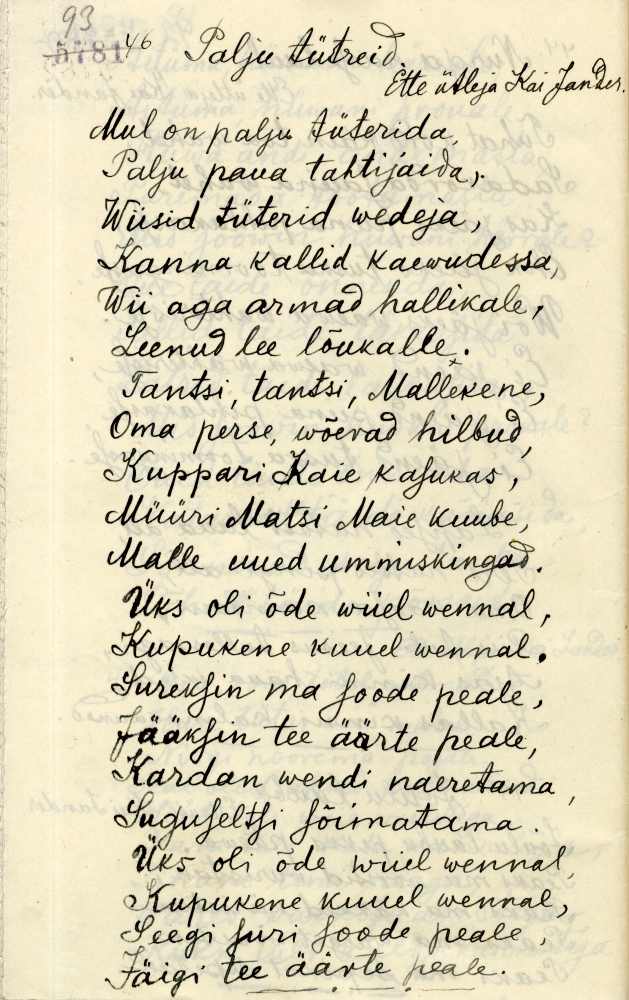 93
5781 46 Palju tütreid.
Ette ütleja Kai Jander.
Mul on palju tüterida,
Palju paua tahtijaida,
Wiisid tüterid wedeja,
Kanna kallid kaewudessa,
Wii aga armad hallikale,
Leenud lee lõukalle.
Tantsi, tantsi, Mallekene,
Oma perse, wõerad hilbud,
Kuppari Kaie kasukas,
Müüri Matsi Maie kuube,
Malle uued ummiskingad.
Üks oli õde wiiel wennal,
Kupukene kuuel wennal.
Sureksin ma soode peale,
Jääksin tee äärte peale,
Kardan wendi naeretama,
Suguseltsi sõimatama.
Üks oli õde wiiel wennal,
Kupukene kuuel wennal,
Seegi suri soode peale,
Jäigi tee äärte peale.